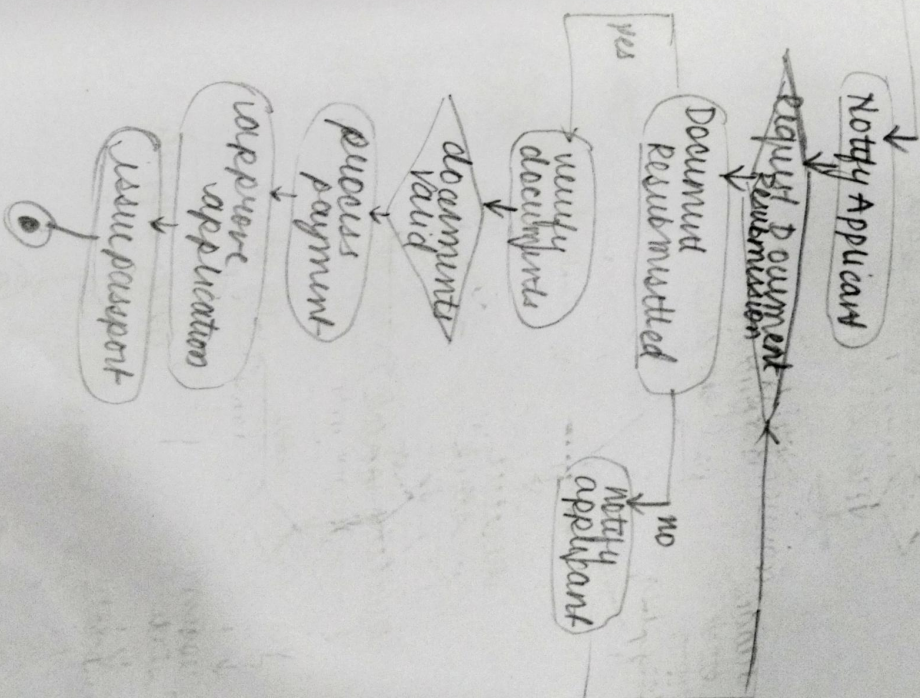 Notify Applicant
Request Document
Resubmission
Document
Resubmitted
yes
no
notify
applicant
verify
documents
documents
valid
process
payment
approve
application
issue passport